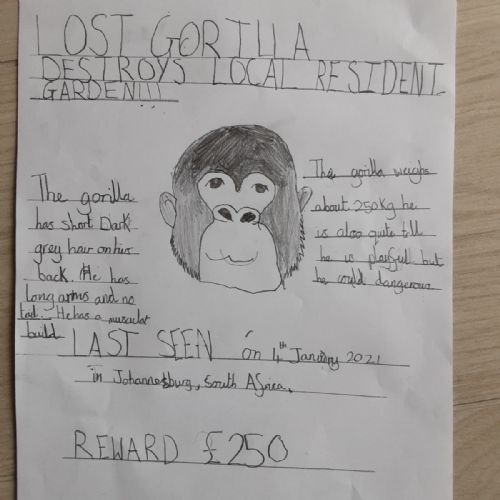 LOST GORILLA
DESTROYS LOCAL RESIDENT
GARDEN!!!
The gorilla
has short Dark
grey hair on his
back. He has
long arms and no
tail. He has a muscular
build
The gorilla weighs
about 250Kg he
is also quite tall
he is playful but
he could dangerous
LAST SEEN on 4th January 2021
in Johannesburg, South Africa.
REWARD £250